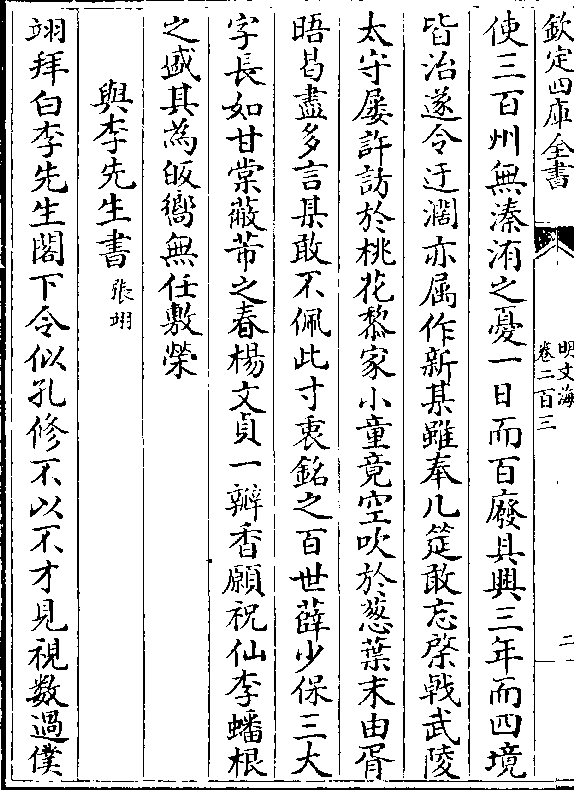 欽定四庫全書
明文海
卷二百三
二
使三百州無溱洧之憂一日而百廢具興三年而四境
皆治遂令迂濶亦属作新某雖奉几筵敢忘棨戟武陵
太守屡許訪於桃花黎家小童竟空吹於葱葉末由胥
晤曷盡多言某敢不佩此寸衷銘之百世薛少保三大
字長如甘棠蔽芾之春楊文貞一瓣香願祝仙李蟠根
之盛其為皈嚮無任敷榮
與李先生書 張翊
翊拜白李先生閣下令似孔修不以不才見視数過僕